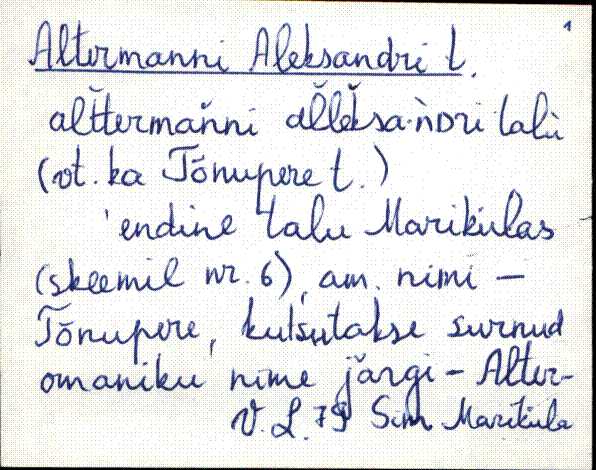 1
Altermanni Aleksandri t.
alťtermaňni aľľeǩsa·ǹDri talù
(vt. ka Tõnupere t.)
'endine talu Mariküläs
(skeemil nr. 6), am. nimi –
Tõnupere, kutsutakse surnud
omaniku nime järgi – Alter-
V. L. 79 Sim Mariküla